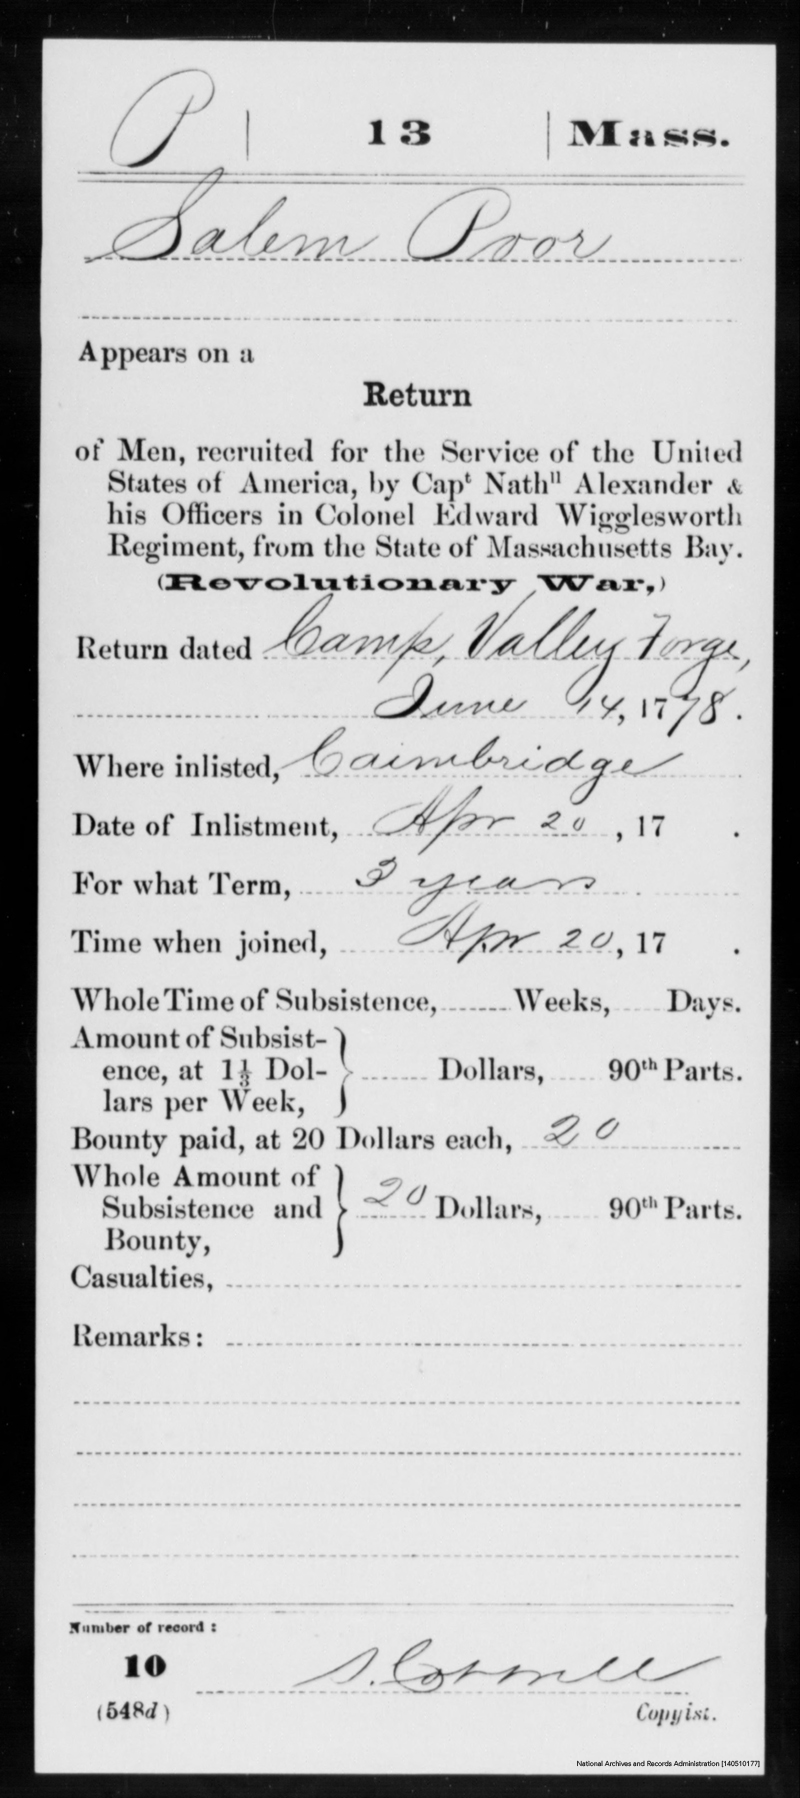 P | 13 | Mass.
Salem Poor
Appears on a
Return
of Men, recruited for the Service of the United
States of America, by Capt Nathll Alexander &
his Officers in Colonel Edward Wigglesworth
Regiment, from the State of Massachusetts Bay.
(Revolutionary War,)
Return dated Camp, Valley Forge,
June 14, 1778.
Where inlisted, Caimbridge
Date of Inlistment, Apr 20, 17 .
For what Term, 3 years
Time when joined, Apr 20, 17 .
Whole Time of Subsistence, Weeks, Days.
Amount of Subsist-
ence, at 1⅓ Dol- } Dollars, 90th Parts.
lars per Week,
Bounty paid, at 20 Dollars each, 20
Whole Amount of
Subsistence and } 20 Dollars, 90th Parts.
Bounty,
Casualties,
Remarks:
Number of record:
10
(548d) Copyist.
National Archives and Records Administration [140510177]